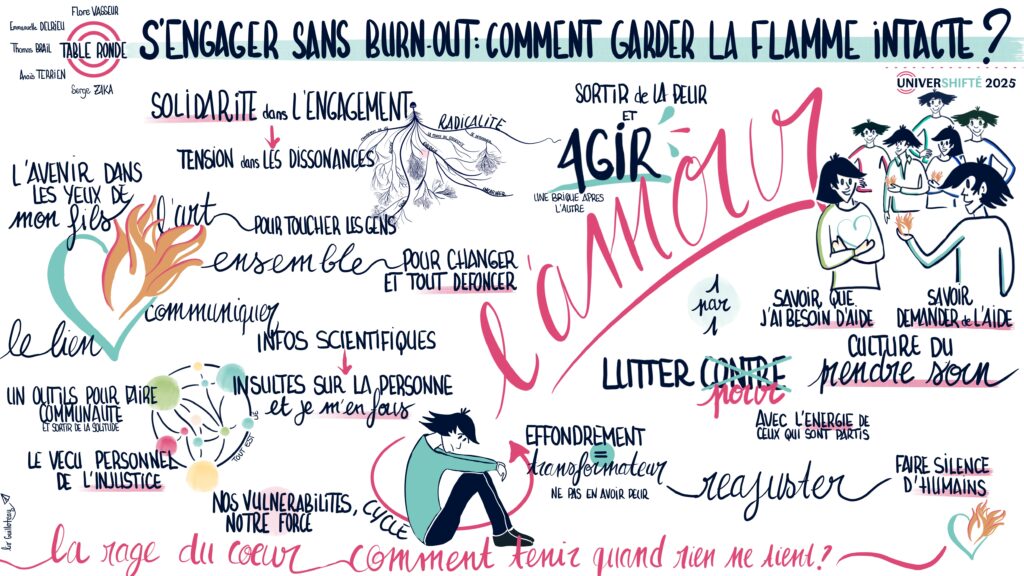 Flore VASSEUR
Emmanuelle DELRIEU
Thomas BRAIL
TABLE RONDE
Anaïs TERRIEN
Serge ZAKA
S'ENGAGER SANS BURN-OUT: COMMENT GARDER LA FLAMME INTACTE ?
UNIVERSHIFTÉ 2025
SOLIDARITE dans L'ENGAGEMENT
TENSION dans LES DISSONANCES
RADICALITÉ
SORTIR de LA PEUR
ET
AGIR
UNE BRIQUE APRES
L'AUTRE
l'amour
L'AVENIR DANS
LES YEUX DE
mon fils
l'art
POUR TOUCHER LES GENS
ensemble
POUR CHANGER
ET TOUT DEFONCER
communiquer
le lien
INFOS SCIENTIFIQUES
INSULTES SUR LA PERSONNE
et je m'en fous
1
par
1
SAVOIR QUE
J'AI BESOIN D'AIDE
SAVOIR
DEMANDER de L'AIDE
LUTTER CONTRE
pour
CULTURE DU
prendre soin
AVEC L'ENERGIE DE
CEUX QUI SONT PARTIS
UN OUTILS POUR FAIRE
COMMUNAUTE
ET SORTIR DE LA SOLITUDE
TOUT EST LIÉ
LE VECU PERSONNEL
DE L'INJUSTICE
NOS VULNERABILITES,
NOTRE FORCE
CYCLE
EFFONDREMENT
=
transformateur
NE PAS EN AVOIR PEUR
reajuster
FAIRE SILENCE
D'HUMAINS
la rage du coeur
comment tenir quand rien ne tient?